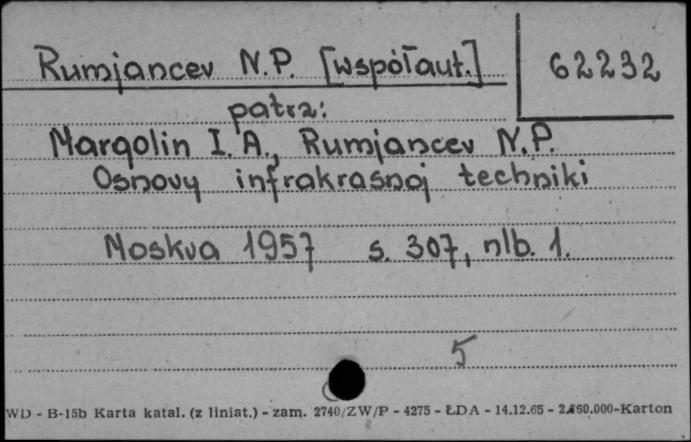 Rumjancev N.P. [współaut.] 62232
patrz:
Margolin I. A., Rumjancev N.P.
Osnovy infrakrasnoj techniki
Moskva 1957 s. 307, nlb. 1.
5
WD - B-15b Karta katal. (z liniat.) - zam. 2740/ZW/P - 4275 - ŁDA - 14.12.65 - -Karton